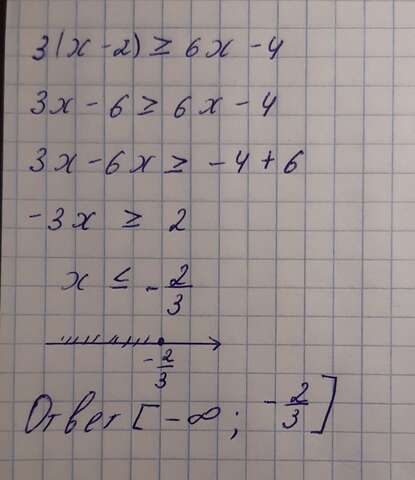 3(x - 2) ≥ 6x - 4
3x - 6 ≥ 6x - 4
3x - 6x ≥ - 4 + 6
-3x ≥ 2
x ≤ - 2/3
- 2/3
Ответ [-∞; - 2/3]